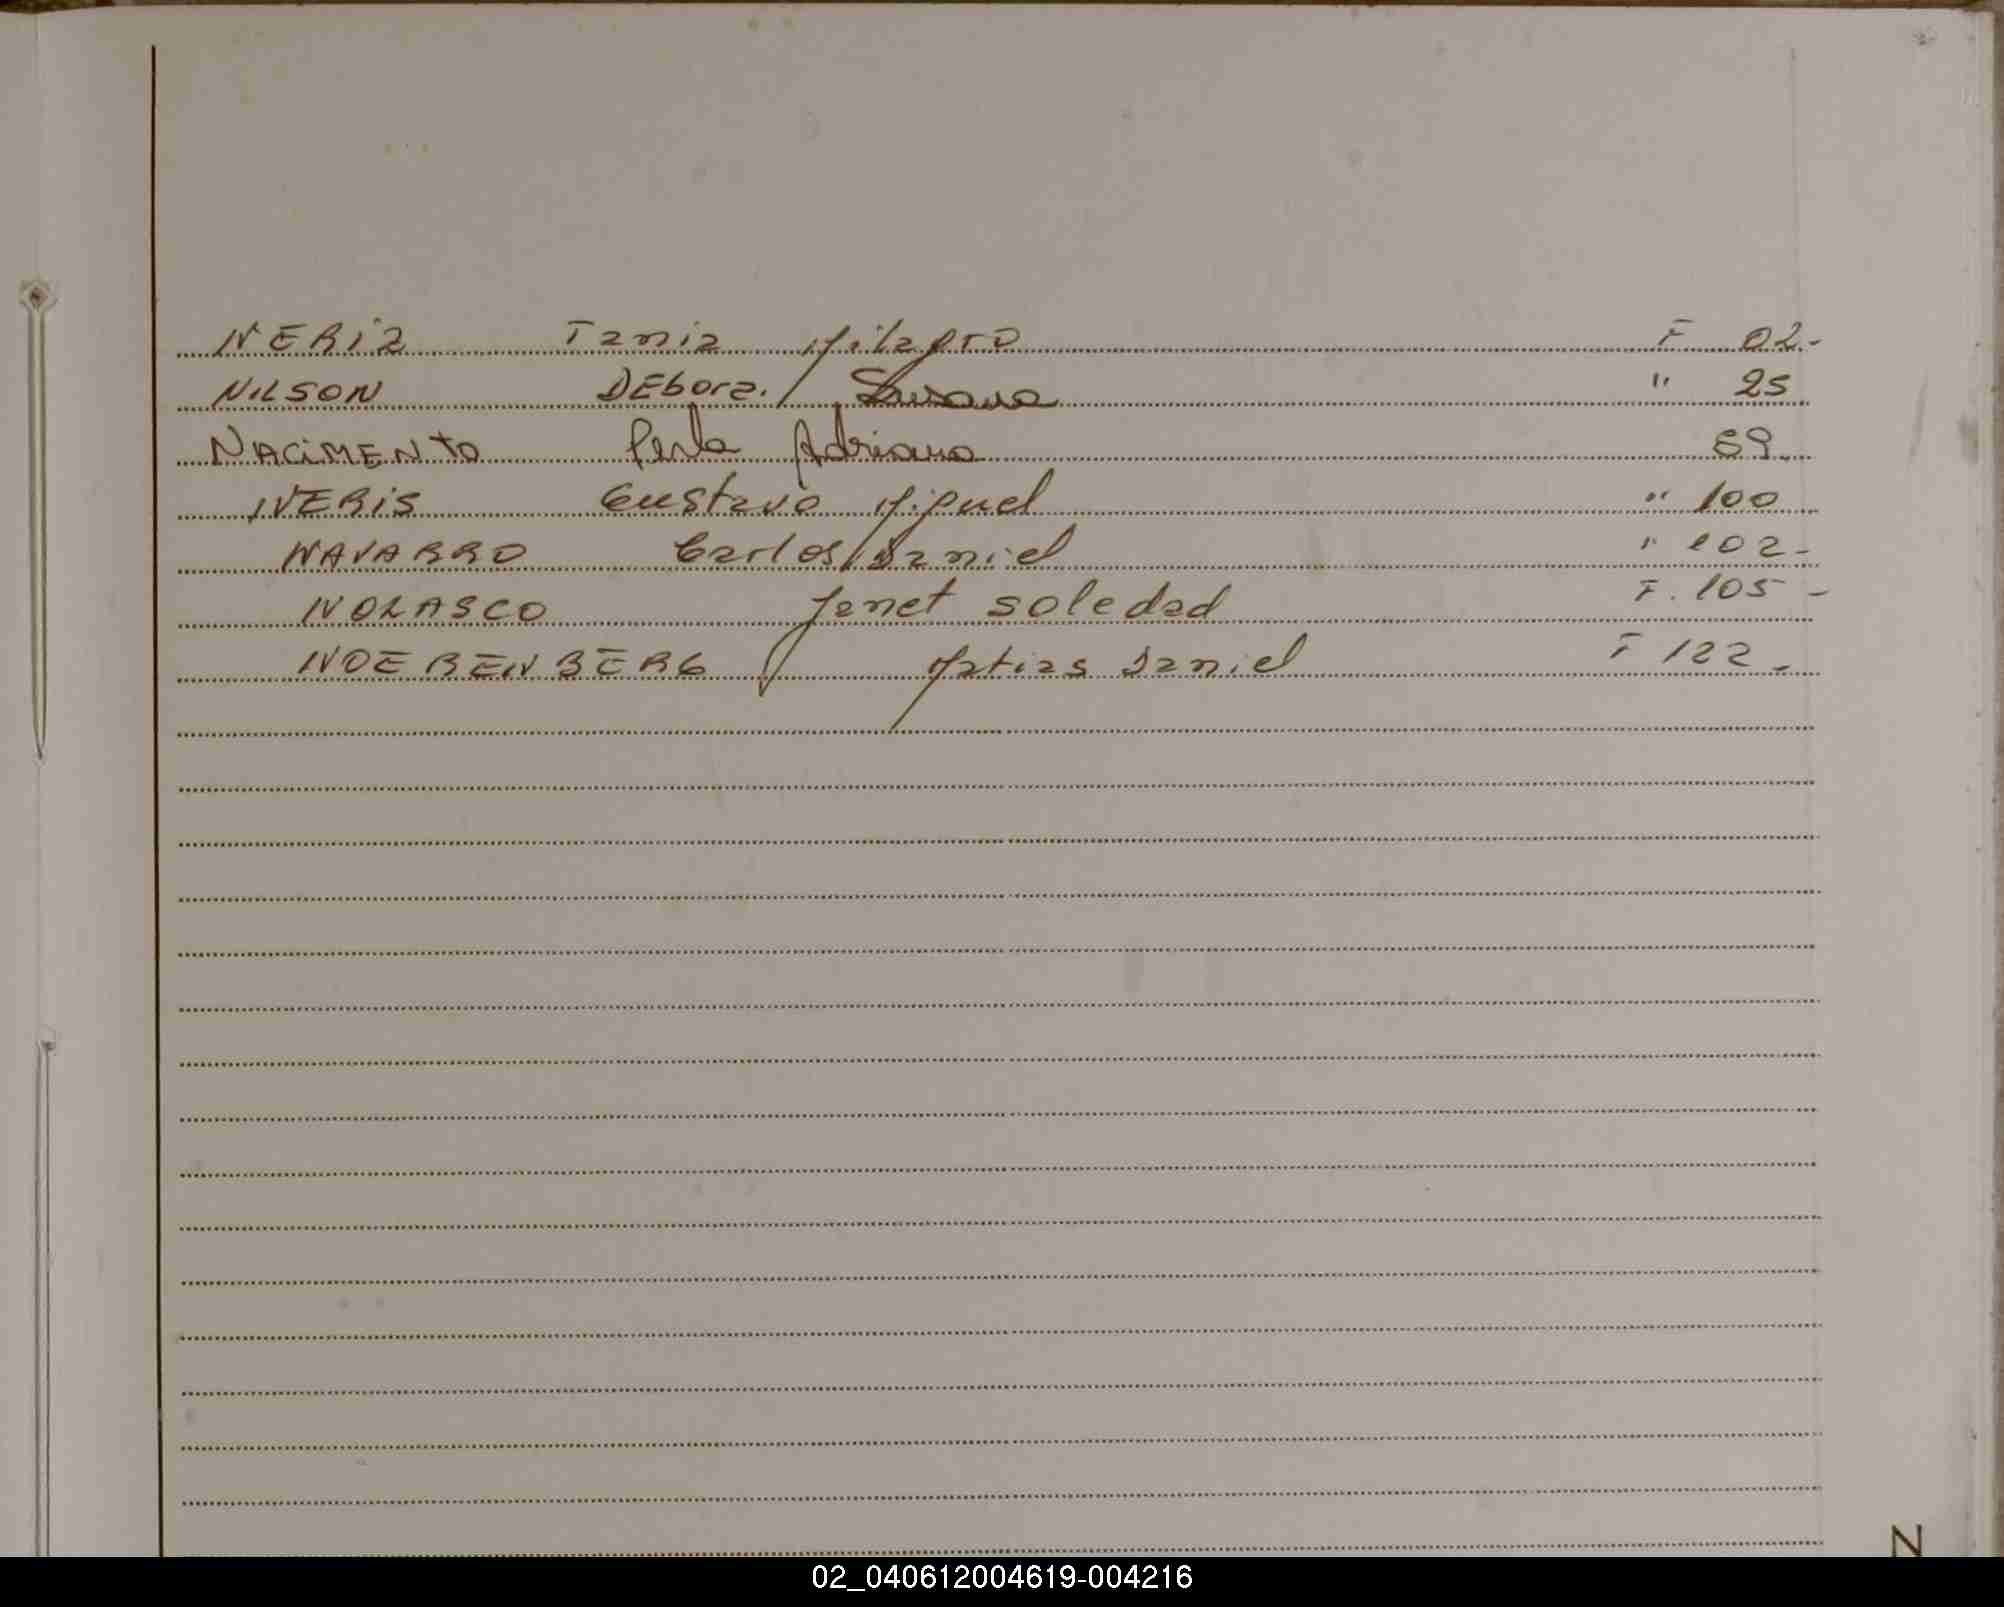 NERIZ Tania Milagro F 02-
NILSON DEbora. Susana " 25
NACIMENTO Perla Adriana 89.
NERIS Gustavo Miguel " 100
NAVARRO Carlos Daniel " 102-
NOLASCO Janet soledad F. 105 -
NOERENBERG Matias Daniel F 122-
N
02_040612004619-004216